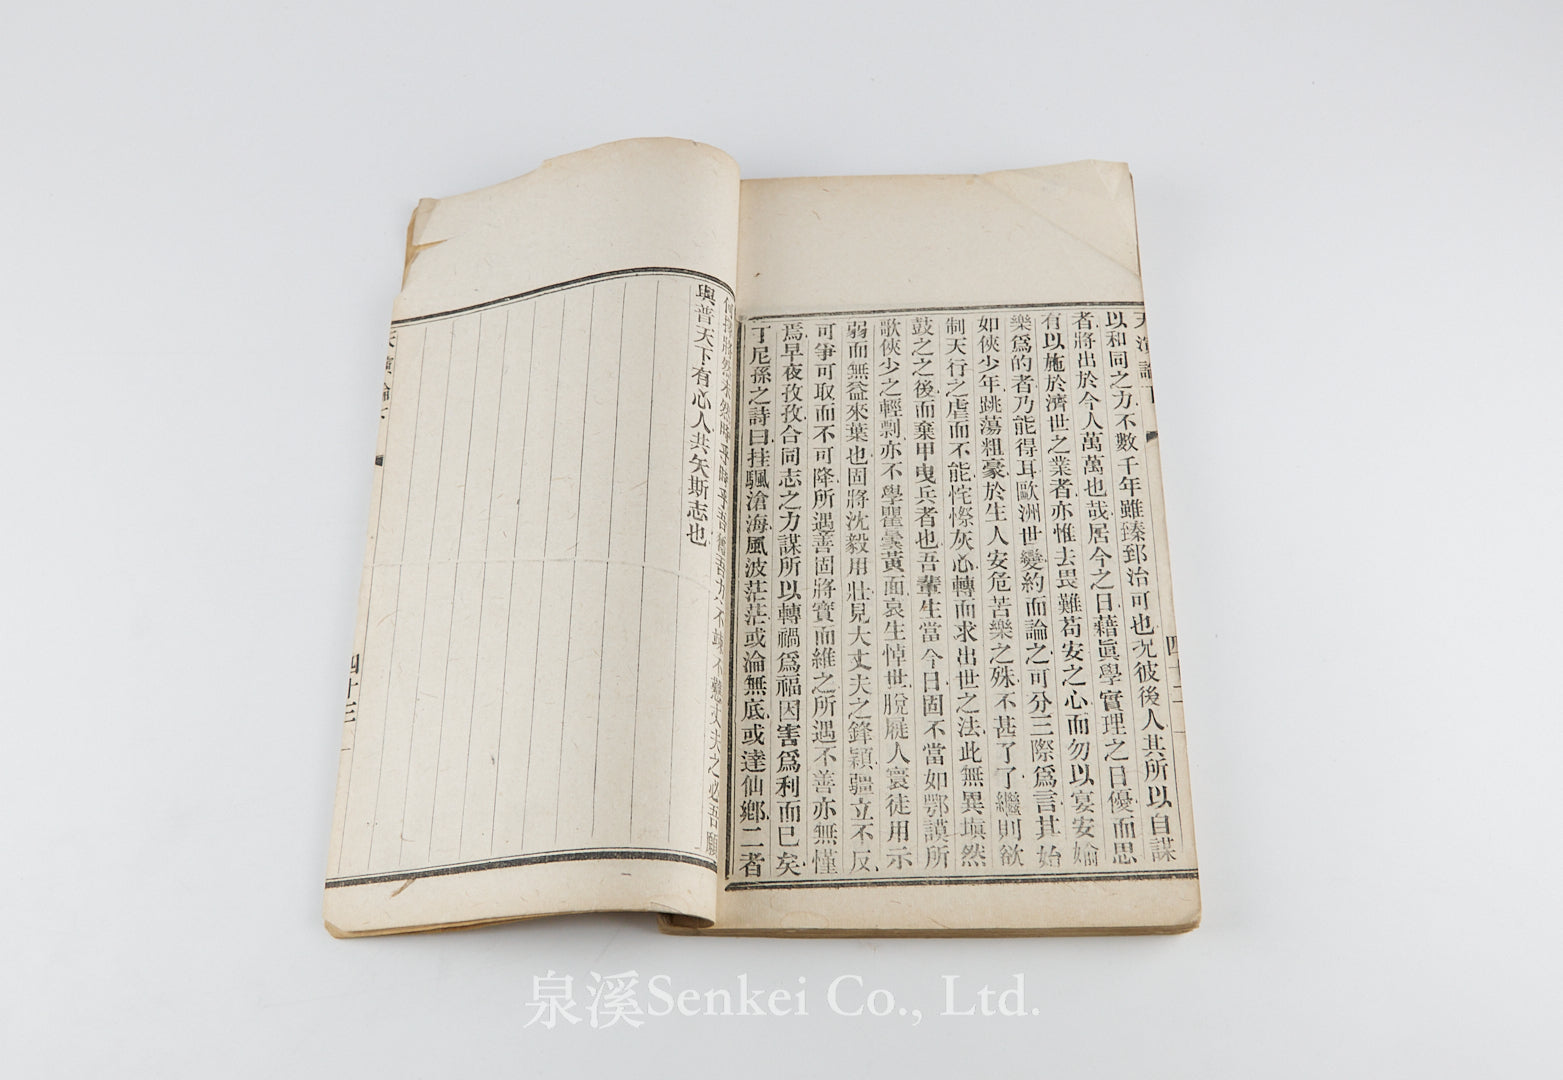 天演論下
四十二
以和同之力不數千年雖臻郅治可也況彼後人其所以自謀
者將出於今人萬萬也哉居今之日藉眞學實理之日優而思
有以施於濟世之業者亦惟去畏難苟安之心而勿以宴安媮
樂爲的者乃能得耳歐洲世變約而論之可分三際爲言其始
如俠少年跳蕩粗豪於生人安危苦樂之殊不甚了了繼則欲
制天行之虐而不能侘傺灰心轉而求出世之法此無異塡然
鼓之之後而棄甲曳兵者也吾輩生當今日固不當如鄂謨所
歌俠少之輕剽亦不學瞿曇黃面哀生悼世脫屣人寰徒用示
弱而無益來葉也固將沈毅用壯見大丈夫之鋒穎彊立不反
可爭可取而不可降所遇善固將寶而維之所遇不善亦無慬
焉早夜孜孜合同志之力謀所以轉禍爲福因害爲利而已矣
丁尼孫之詩曰挂颿滄海風波茫茫或淪無底或達仙鄉二者
何擇將然未然時乎時乎吾奮吾力不竦不戁丈夫之必吾願
與普天下有心人共矢斯志也
天演論下
四十三
泉溪Senkei Co., Ltd.